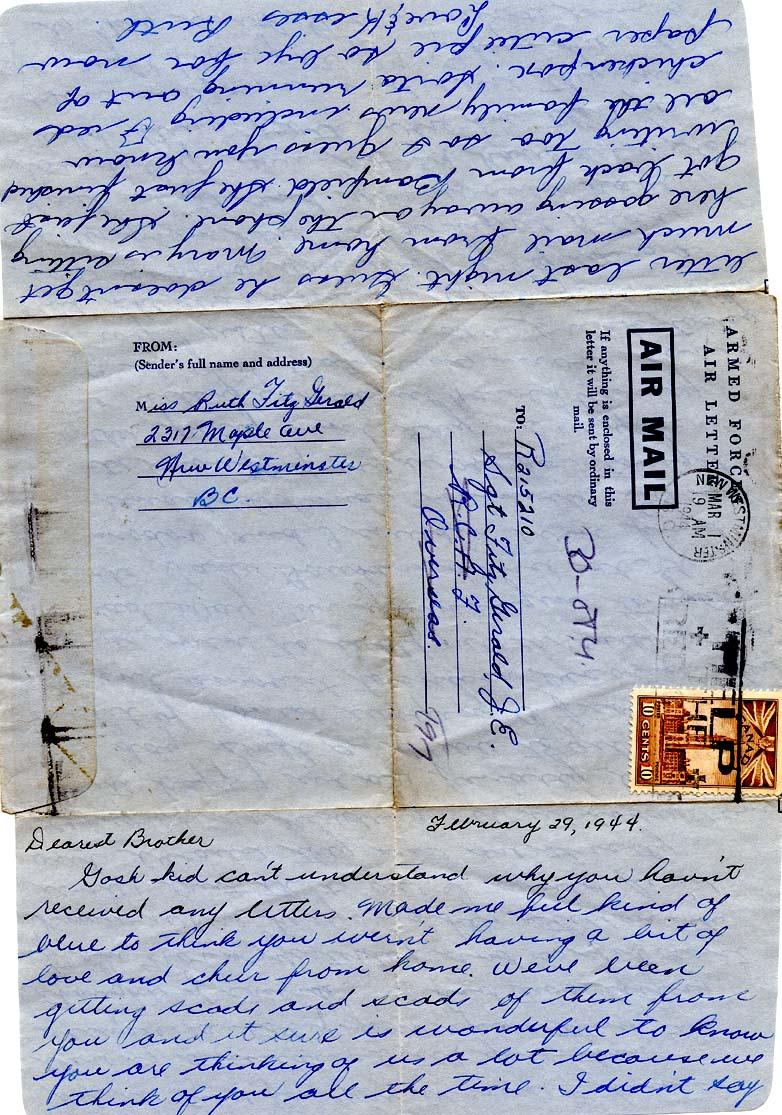 liter last night. Guess he doesn't get
much mail from home. Mary is sitting
here gossing away on the phone. She just
got back from Bamfield. She just finished
writing too so I guess you know
all the family news including Fred
chickenpox. Sorta running out of
paper cutie pie so bye for now
Love & Kisses Ruth
FROM:
(Sender's full name and address)
Miss Ruth Fitz Gerald
2317 Maple Ave
New Westminster
BC.
ARMED FORCES
AIR LETTER
AIR MAIL
If anything is enclosed in this
letter it will be sent by ordinary
mail.
TO: R215210
Sgt Fitz Gerald, J.E.
R.C.A.F.
Overseas.
NEW WESTMINSTER
MAR 1
9 AM
1944
RED
10 CENTS 10
February 29, 1944.
Dearest Brother
Gosh kid can't understand why you havn't
received any letters. Made me feel kind of
blue to think you wernt having a bit of
love and cheer from home. Weve been
getting scads and scads of them from
you and it sure is wonderful to know
you are thinking of us a lot because we
think of you all the time. I didn't say